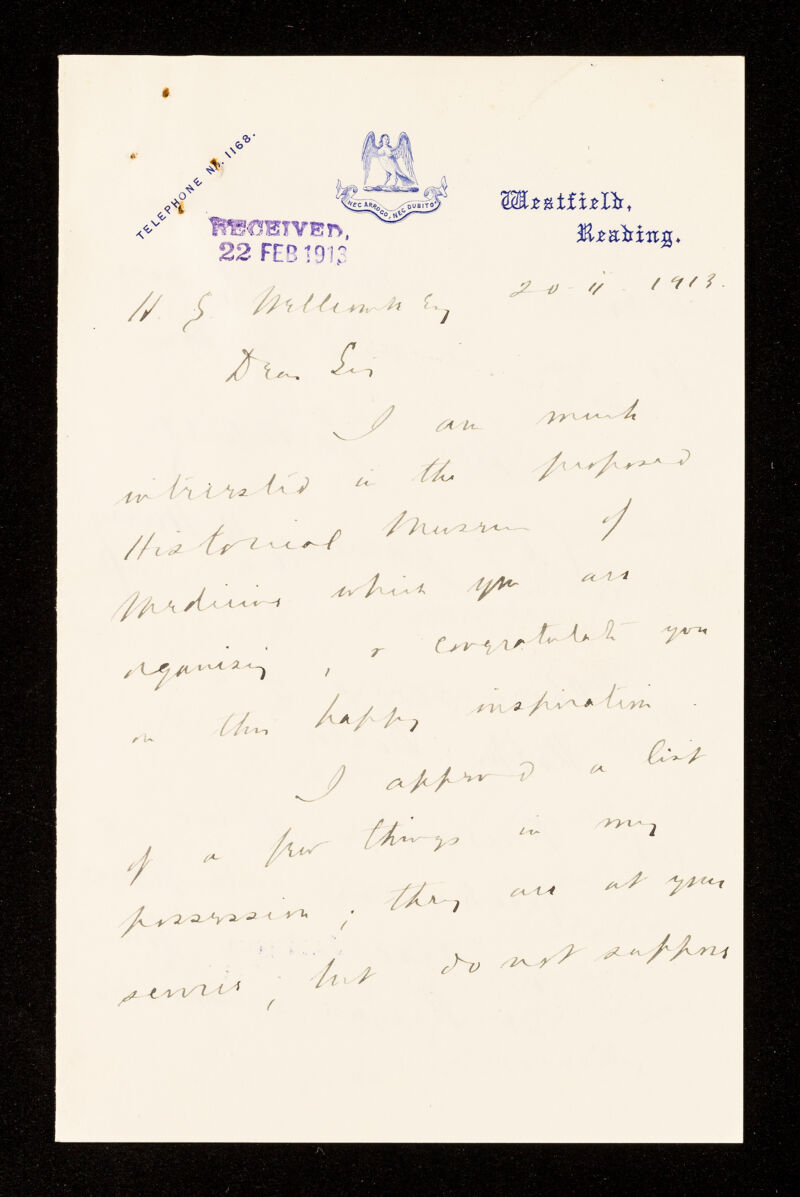 TELEPHONE No. 1168.
NEC ARROGO, NEC DUBITO
Westfield,
Reading.
RECEIVED,
22 FEB 1913
20 - ii - 1913.
H. S. Wellcome Esq
Dear Sir
I am much
interested in the proposed
Historical Museum of
Medicine which you are
organising, & congratulate you
on this happy inspiration.
I append a list
of a few things in my
possession; they are at your
service, but do not suppose